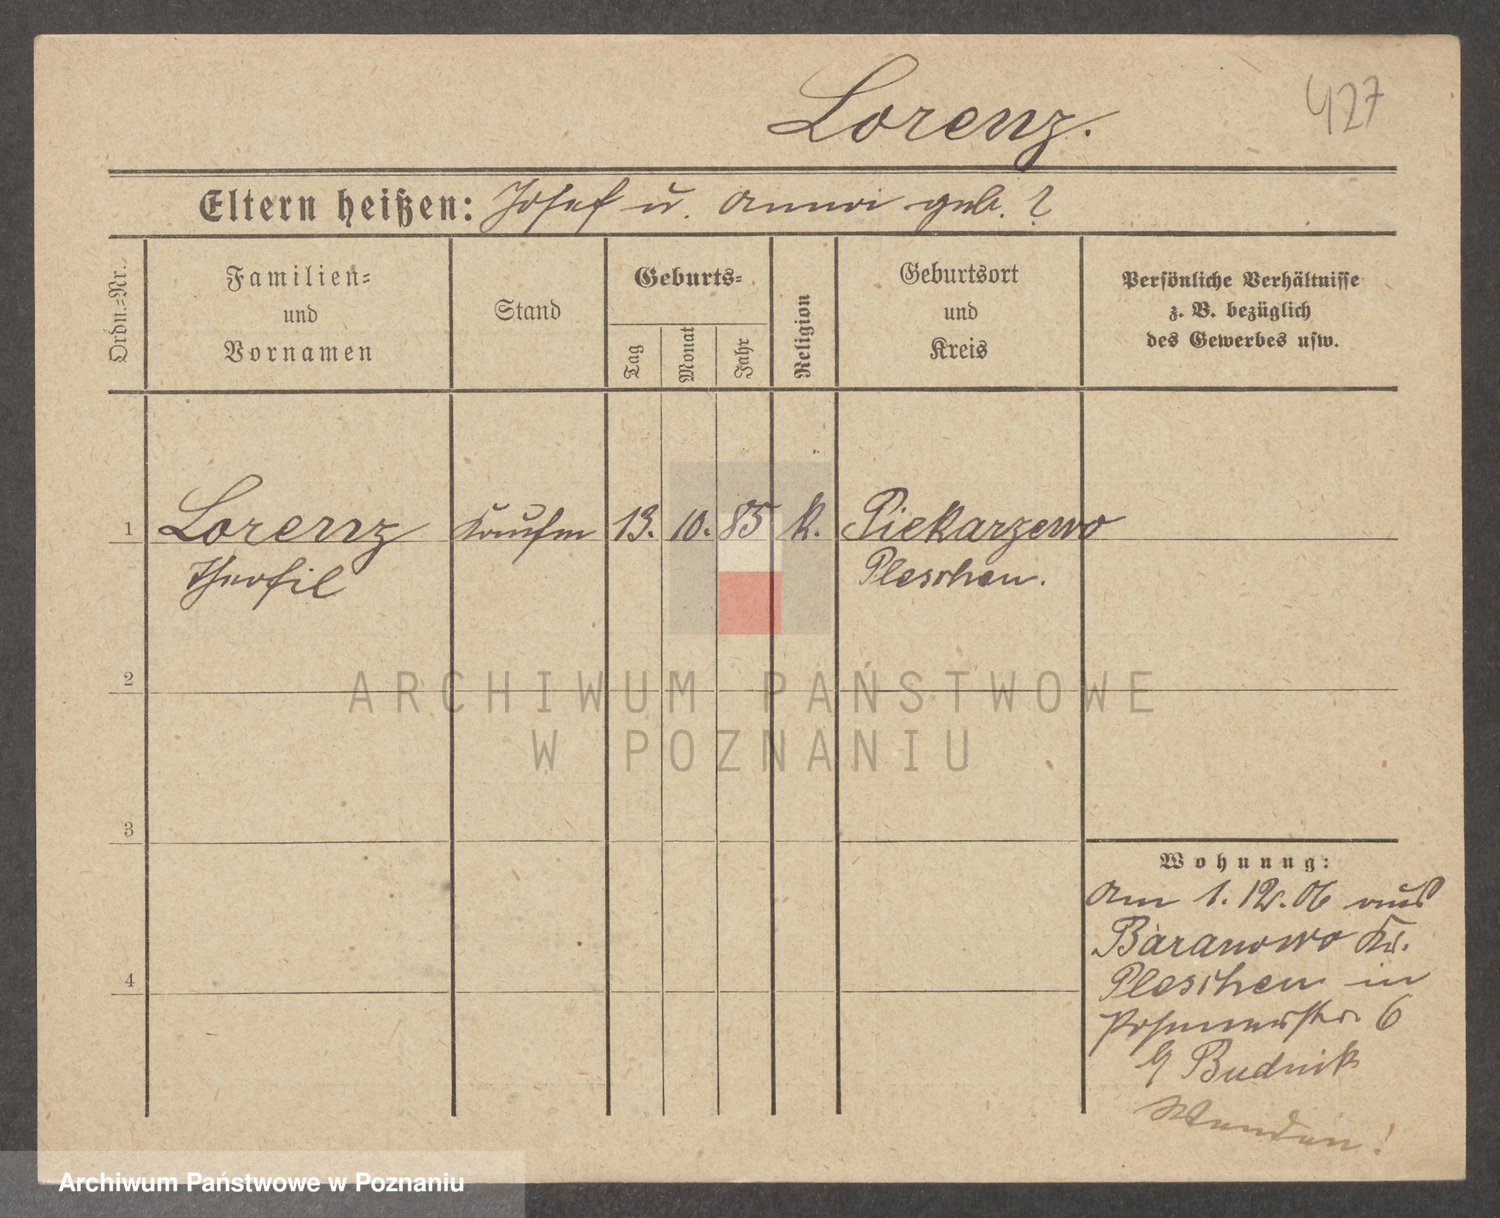 427
Lorenz.
Eltern heißen: Josef u. Anna geb. ?
Ordn.=Nr.
Familien=
und
Vornamen
Stand
Geburts=
Tag
Monat
Jahr
Religion
Geburtsort
und
Kreis
Persönliche Verhältnisse
z. B. bezüglich
des Gewerbes usw.
1 Lorenz Kaufm 13. 10. 85 k. Piekarzewo
Theofil Pleschen.
2
3
4
Wohnung:
Am 1.12.06 aus
Baranowo Kr.
Pleschen in
Posenerstr. 6
b/ Budnik
Wenden!
ARCHIWUM PAŃSTWOWE
W POZNANIU
Archiwum Państwowe w Poznaniu